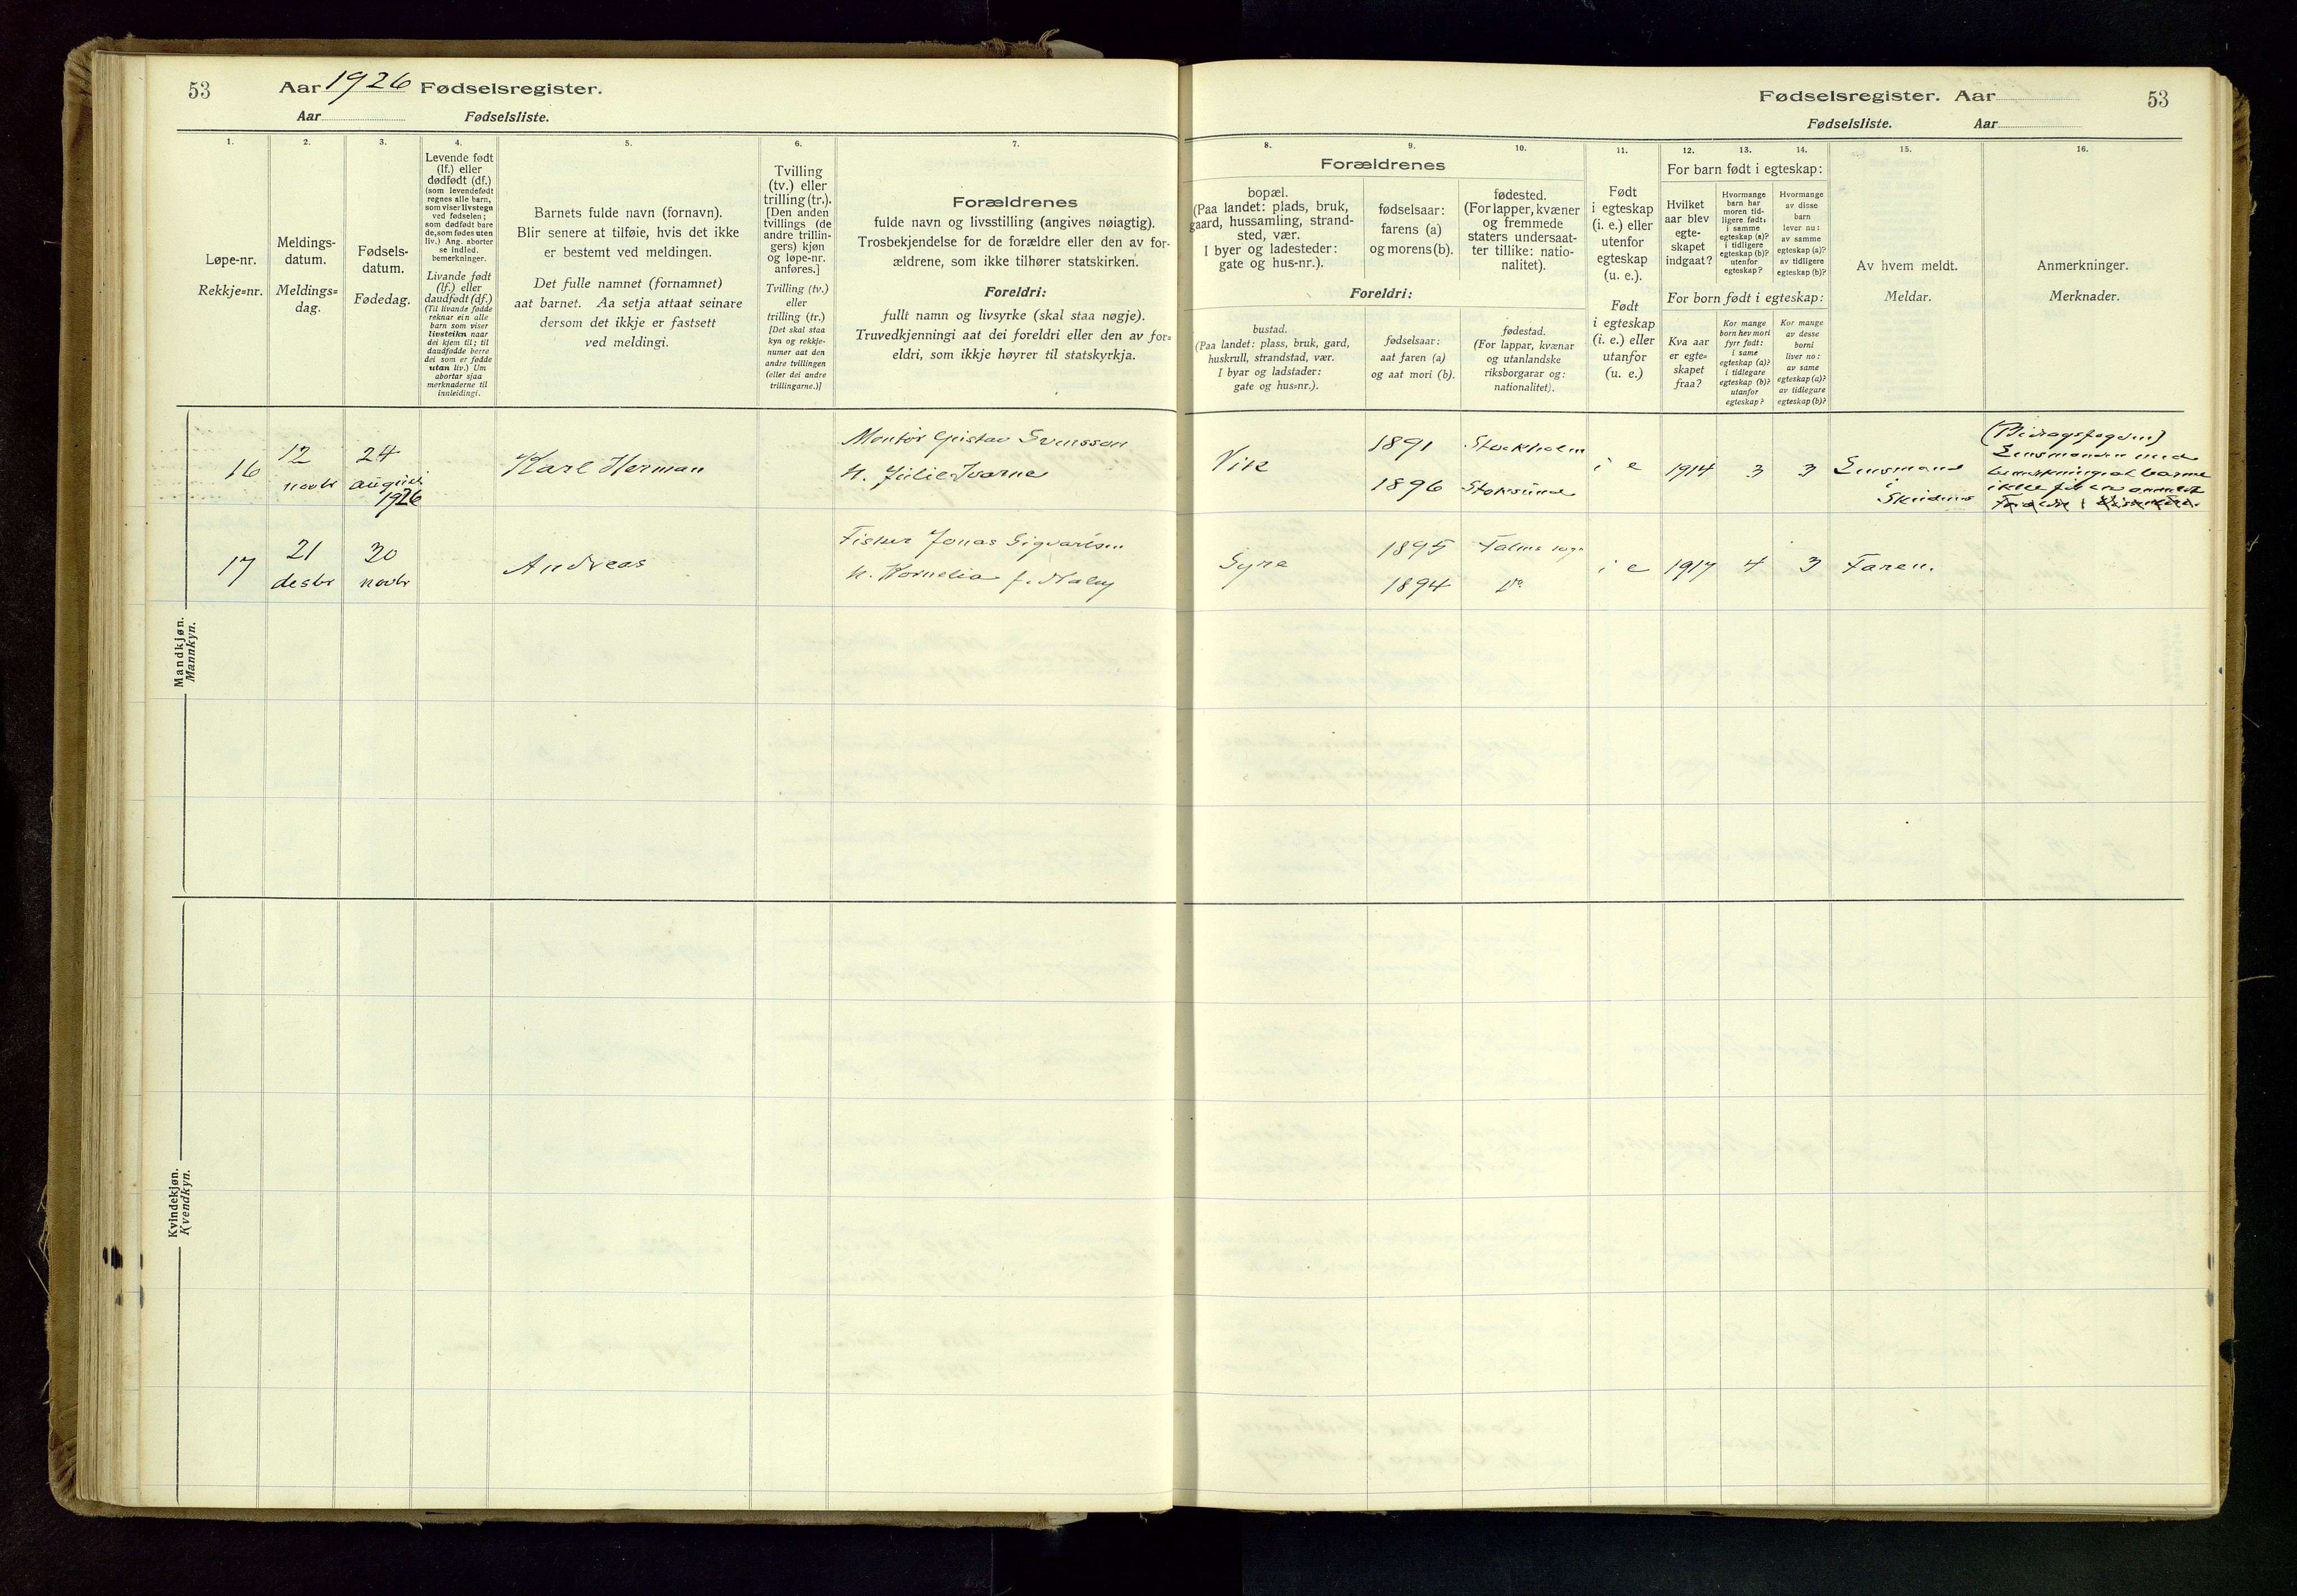 53
Aar 1926 Fødselsregister.
Aar Fødselsliste.
Fødselsregister. Aar
53
Fødselsliste. Aar
1.
Løpe-nr.
Rekkje=nr.
2.
Meldings-
datum.
Meldings=
dag.
3.
Fødsels-
datum.
Fødedag.
4.
Levende født
(lf.) eller
dødfødt (df.)
(som levendefødt
regnes alle barn,
som viser livstegn
ved fødselen;
som dødfødt bare
de, som fødes uten
liv.) Ang. aborter
se indled.
bemerkninger.
Livande født
(lf.) eller
daudfødt (df.)
(Til livande fødde
reknar ein alle
barn som viser
livsteikn naar
dei kjem til; til
daudfødde berre
dei som er fødde
utan liv.) Um
abortar sjaa
merknaderne til
innleidingi.
5.
Barnets fulde navn (fornavn).
Blir senere at tilføie, hvis det ikke
er bestemt ved meldingen.
Det fulle namnet (fornamnet)
aat barnet. Aa setja attaat seinare
dersom det ikkje er fastsett
ved meldingi.
6.
Tvilling
(tv.) eller
trilling (tr.).
[Den anden
tvillings (de
andre trillin-
gers) kjøn
og løpe-nr.
anføres.]
Tvilling (tv.)
eller
trilling (tr.)
[Det skal staa
kyn og rekkje-
numer aat den
andre tvillingen
(eller dei andre
trillingarne.)]
7.
Forældrenes
fulde navn og livsstilling (angives nøiagtig).
Trosbekjendelse for de forældre eller den av for-
ældrene, som ikke tilhører statskirken.
Foreldri:
fullt namn og livsyrke (skal staa nøgje).
Truvedkjenningi aat dei foreldri eller den av for=
eldri, som ikkje høyrer til statskyrkja.
Forældrenes
8.
bopæl.
(Paa landet: plads, bruk,
gaard, hussamling, strand-
sted, vær.
I byer og ladesteder:
gate og hus-nr.).
9.
fødselsaar:
farens (a)
og morens (b).
10.
fødested.
(For lapper, kvæner
og fremmede
staters undersaat-
ter tillike: natio-
nalitet).
Foreldri:
bustad.
(Paa landet: plass, bruk, gard,
huskrull, strandstad, vær.
I byar og ladstader:
gate og hus=nr.).
fødselsaar:
aat faren (a)
og aat mori (b).
fødestad.
(For lappar, kvænar
og utanlandske
riksborgarar og:
nationalitet).
11.
Født
i egteskap
(i. e.) eller
utenfor
egteskap
(u. e.).
Født
i egteskap
(i. e.) eller
utanfor
(u. e.)
12. 13. 14.
For barn født i egteskap:
Hvilket
aar blev
egte-
skapet
indgaat?
Hvormange
barn har
moren tid-
ligere født:
i samme
egteskap (a)?
i tidligere
egteskap (b)?
utenfor
egteskap?
Hvormange
av disse
barn
lever nu:
av samme
egteskap (a)?
av tidligere
egteskap (b)?
For born født i egteskap:
Kva aar
er egte=
skapet
fraa?
Kor mange
born hev mori
fyrr født:
i same
egteskap (a)?
i tidlegare
egteskap (b)?
utanfor
egteskap?
Kor mange
av desse
borni
liver no:
av same
egteskap (a)?
av tidlegare
egteskap (b)?
15.
Av hvem meldt.
Meldar.
16.
Anmerkninger.
Merknader.
Mandkjøn.
Mannkyn.
16 12 novbr 24 august 1926 Karl Herman
Montør Gustav Svensson
h. Julie Ivarne
Vik 1891 Stockholm
1896 Stoksund
i e 1914 3 3 Lensmand i Skudenes
(Bidragsfogden)
Lensmanden med
17 21 desbr 30 novbr Andreas
Fisker Jonas Sigvartsen
h. Kornelia f. Naley
Syre 1895 Falnes sogn
1894 do
i e 1917 4 3 Faren.
Kvindekjøn.
Kvendkyn.